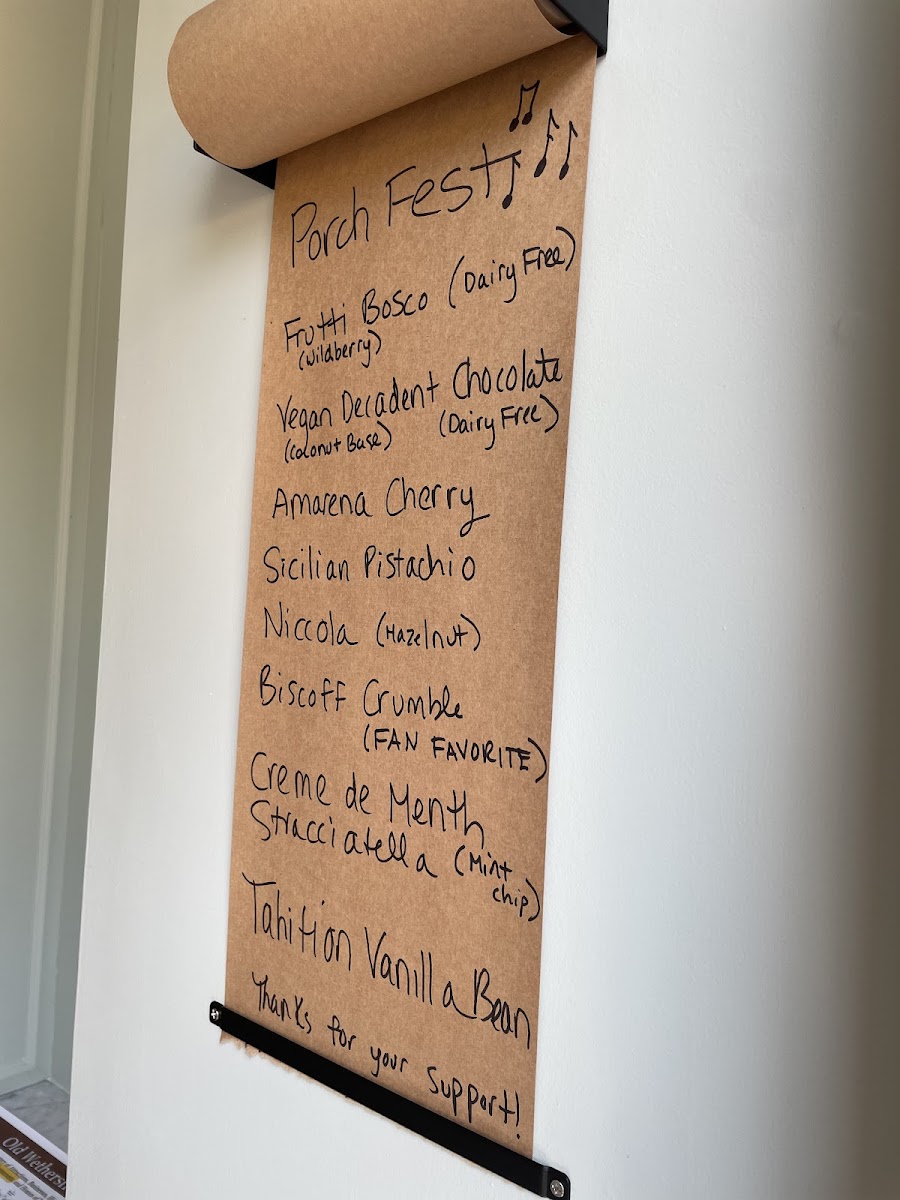 Porch Fest
Frutti Bosco (Dairy Free)
(Wildberry)
Vegan Decadent Chocolate
(Coconut Base) (Dairy Free)
Amarena Cherry
Sicilian Pistachio
Niccola (Hazelnut)
Biscoff Crumble
(FAN FAVORITE)
Creme de Menth
Stracciatella (Mint
chip)
Tahition Vanilla Bean
Thanks for your support!
Old Wethers